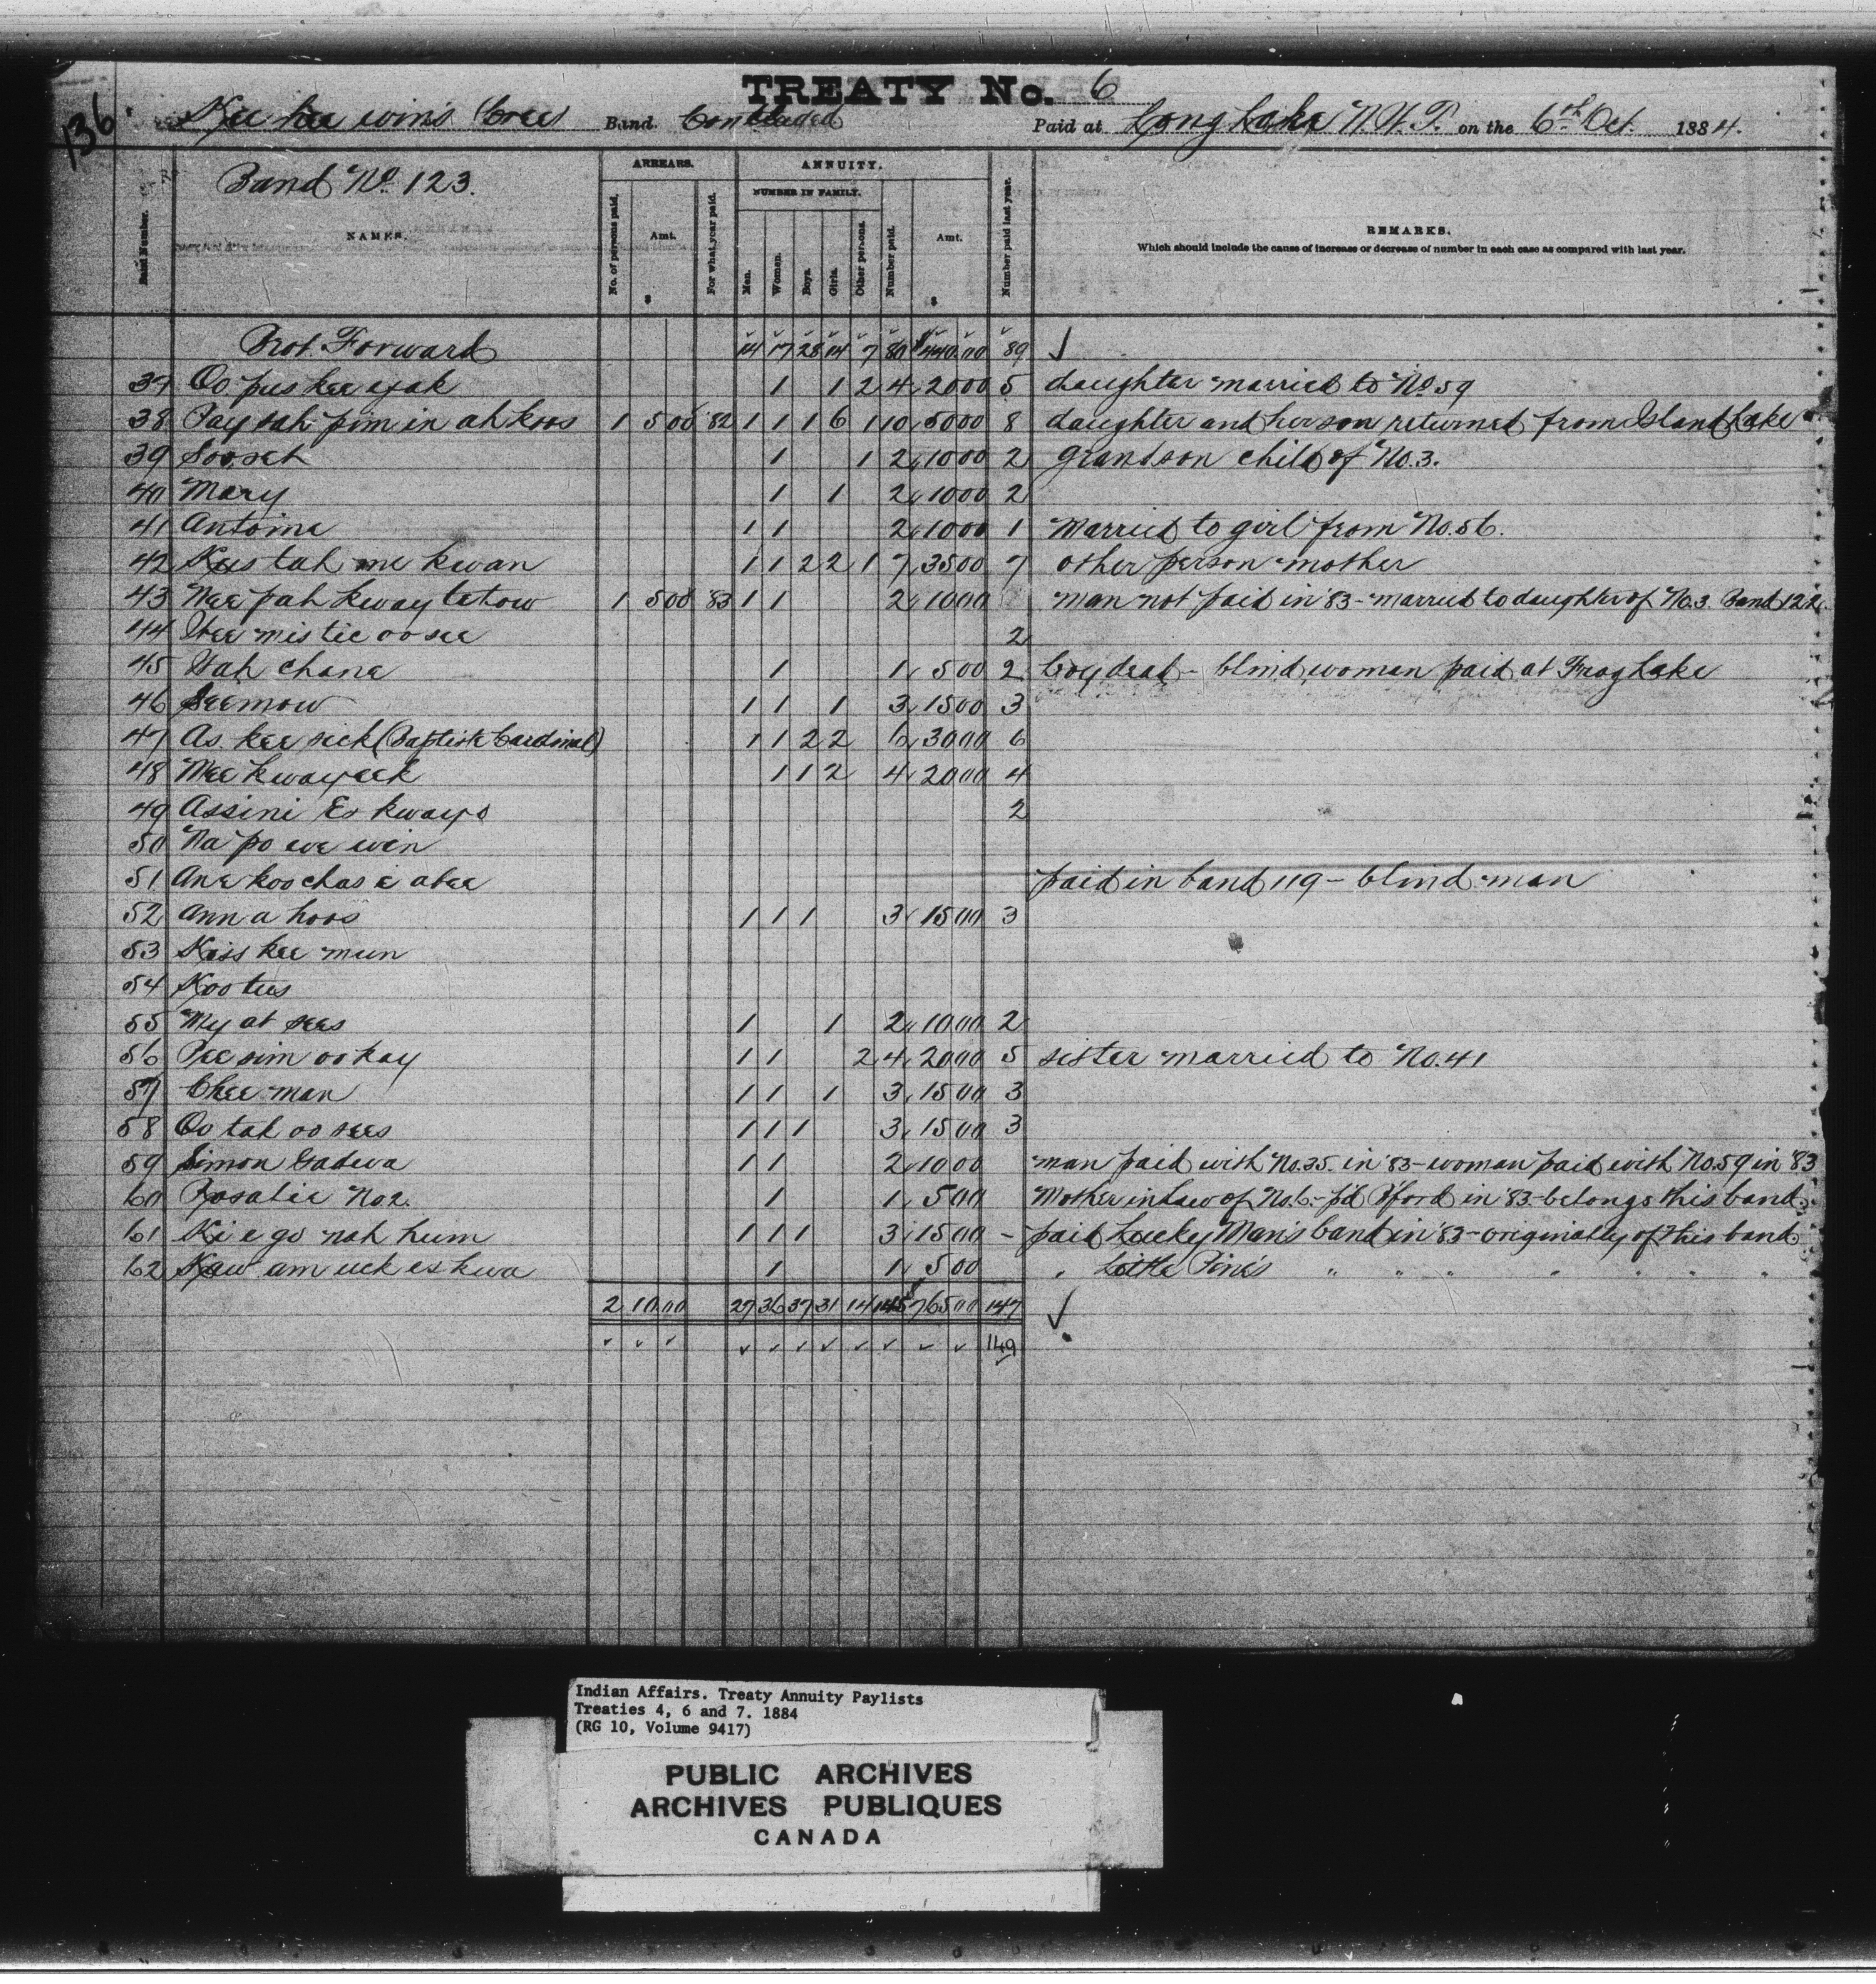 136
TREATY No. 6
Kee hee win's Cree Band. Concluded Paid at Long Lake N.W.T. on the 6th Oct. 1884.
Band No. 123.
ARREARS. ANNUITY.
NUMBER IN FAMILY.
Band Number. NAMES. No. of persons paid. Amt. $ For what year paid. Men. Women. Boys. Girls. Other persons. Number paid. Amt. $ Number paid last year. REMARKS.
Which should include the cause of increase or decrease of number in each case as compared with last year.
Brot. Forward 14 17 28 14 7 80 $440.00 89 ✓
37 Oo pus kee ayak 1 1 2 4 20 00 5 daughter married to No. 59
38 Pay sah pim in ah koos 1 5 00 '82 1 1 1 6 1 10 50 00 8 daughter and her son returned from Island Lake
39 Sooseh 1 1 2 10 00 2 Grandson child of No. 3.
40 Mary 1 1 2 10 00 2
41 Antoine 1 1 2 10 00 1 Married to girl from No. 56.
42 Kus tah me kwan 1 1 2 2 1 7 35 00 7 other person mother
43 Nee pah kway tahow 1 5 00 '83 1 1 2 10 00 man not paid in '83 - married to daughter of No. 3 Band 122.
44 Wee mis tic oo see 2
45 Wah chane 1 1 5 00 2 boy dead - blind woman paid at Frog Lake
46 Seemow 1 1 1 3 15 00 3
47 As kee sick (Baptiste Cardinal) 1 1 2 2 6 30 00 6
48 Mee kwayeek 1 1 2 4 20 00 4
49 Assini Es kwayo 2
50 Na po we win
51 Ane koo chas e abee paid in band 119 - blind man
52 Ann a hoos 1 1 1 3 15 00 3
53 Kiss kee mun
54 Koo tus
55 My at sees 1 1 2 10 00 2
56 Pee sim oo kay 1 1 2 4 20 00 5 sister married to No. 41
57 Chee man 1 1 1 3 15 00 3
58 Oo tah oo sees 1 1 1 3 15 00 3
59 Simon Gadwa 1 1 2 10 00 man paid with No. 35. in '83 - woman paid with No. 59 in '83
60 Rosalie No 2. 1 1 5 00 Mother in Law of No. 6. - p'd B'ford in '83 - belongs this band.
61 Ki e go nah hum 1 1 1 3 15 00 - paid Lucky Man's band in '83 - originally of this band
62 Kaw am uck es kwa 1 1 5 00 " Little Pine's " " " " " " "
2 10 00 27 36 37 31 14 145 $765 00 147 ✓
✓ ✓ ✓ ✓ ✓ ✓ ✓ ✓ ✓ ✓ ✓ 149
Indian Affairs. Treaty Annuity Paylists
Treaties 4, 6 and 7. 1884
(RG 10, Volume 9417)
PUBLIC ARCHIVES
ARCHIVES PUBLIQUES
CANADA